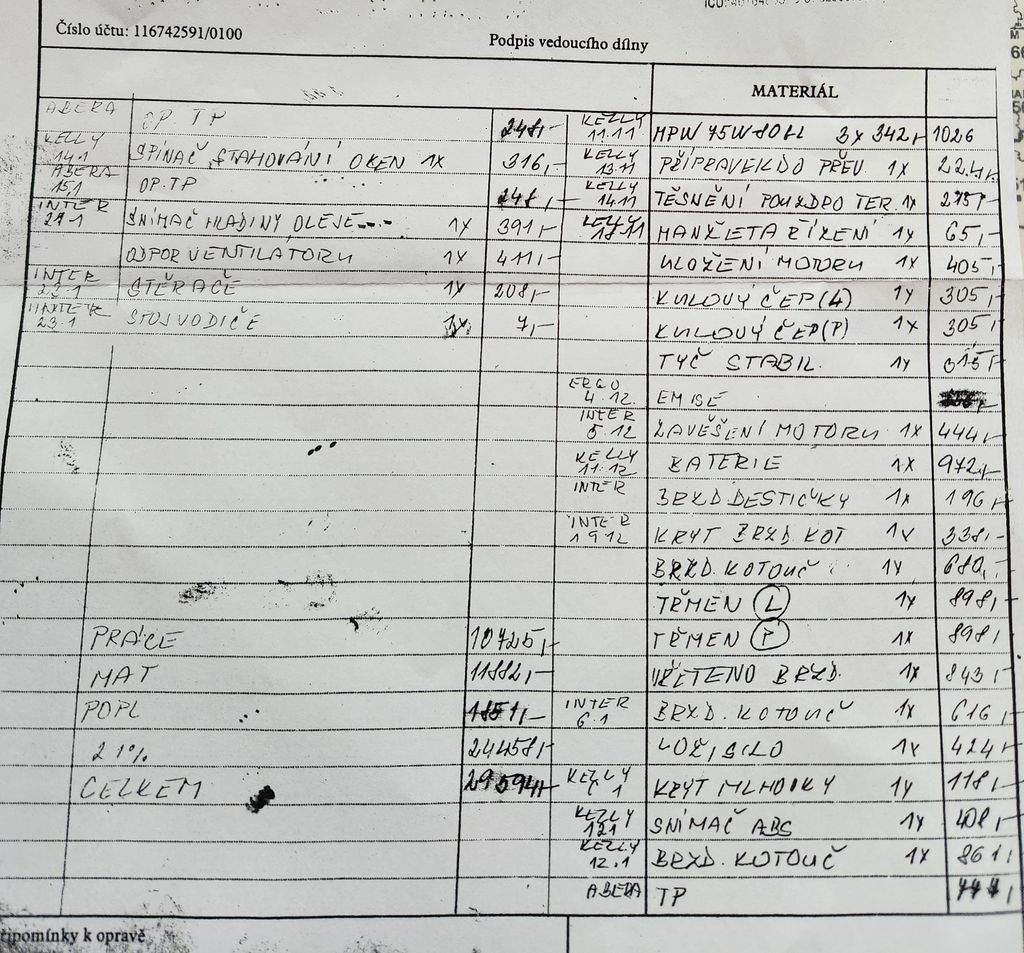 Číslo účtu: 116742591/0100
Podpis vedoucího dílny
MATERIÁL
ABERA OP TP 248,-
KELLY 14.1 SPÍNAČ STAHOVÁNÍ OKEN 1X 316,-
ABERA 15.1 OP.TP 248,-
INTER SNÍMAČ HLADINY OLEJE 1X 391,-
ODPOR VENTILÁTORU 1X 411,-
INTER STĚRAČE 1X 208,-
INTER 23.1 STOJ VODIČE 7,-
PRÁCE 10725,-
MAT 11882,-
POPL 1851,-
21% 24458,-
CELKEM 29594,-
KELLY 11.11 MPW 75W80LL 3X 342,- 1026
KELLY 13.11 PŘÍPRAVEK DO PŘEV 1X 224,-
KELLY 14.11 TĚSNĚNÍ POUZDRO TER. 1X
KELLY 18.11 MANŽETA ŘÍZENÍ 1X 65,-
ULOŽENÍ MOTORU 1X 405,-
KULOVÝ ČEP (L) 1X 305,-
KULOVÝ ČEP (P) 1X 305,-
TYČ STABIL. 1X
ERGO 4.12. EMISE
INTER 5.12 ZAVĚŠENÍ MOTORU 1X 444,-
KELLY 11.12 BATERIE 1X 972,-
INTER BRZD.DESTIČKY 1X 196,-
INTER 19.12 KRYT BRZD KOT 1X 338,-
BRZD. KOTOUČ 1X 680,-
TŘMEN (L) 1X 898,-
TŘMEN (P) 1X 898,-
VŘETENO BRZD. 1X 843,-
INTER 6.1 BRZD. KOTOUČ 1X 616,-
LOŽISKO 1X 424,-
KELLY KRYT MLHOVKY 1X 118,-
KELLY 12.1 SNÍMAČ ABS 1X 408,-
KELLY 12.1 BRZD. KOTOUČ 1X 861,-
ABERA TP
řipomínky k opravě